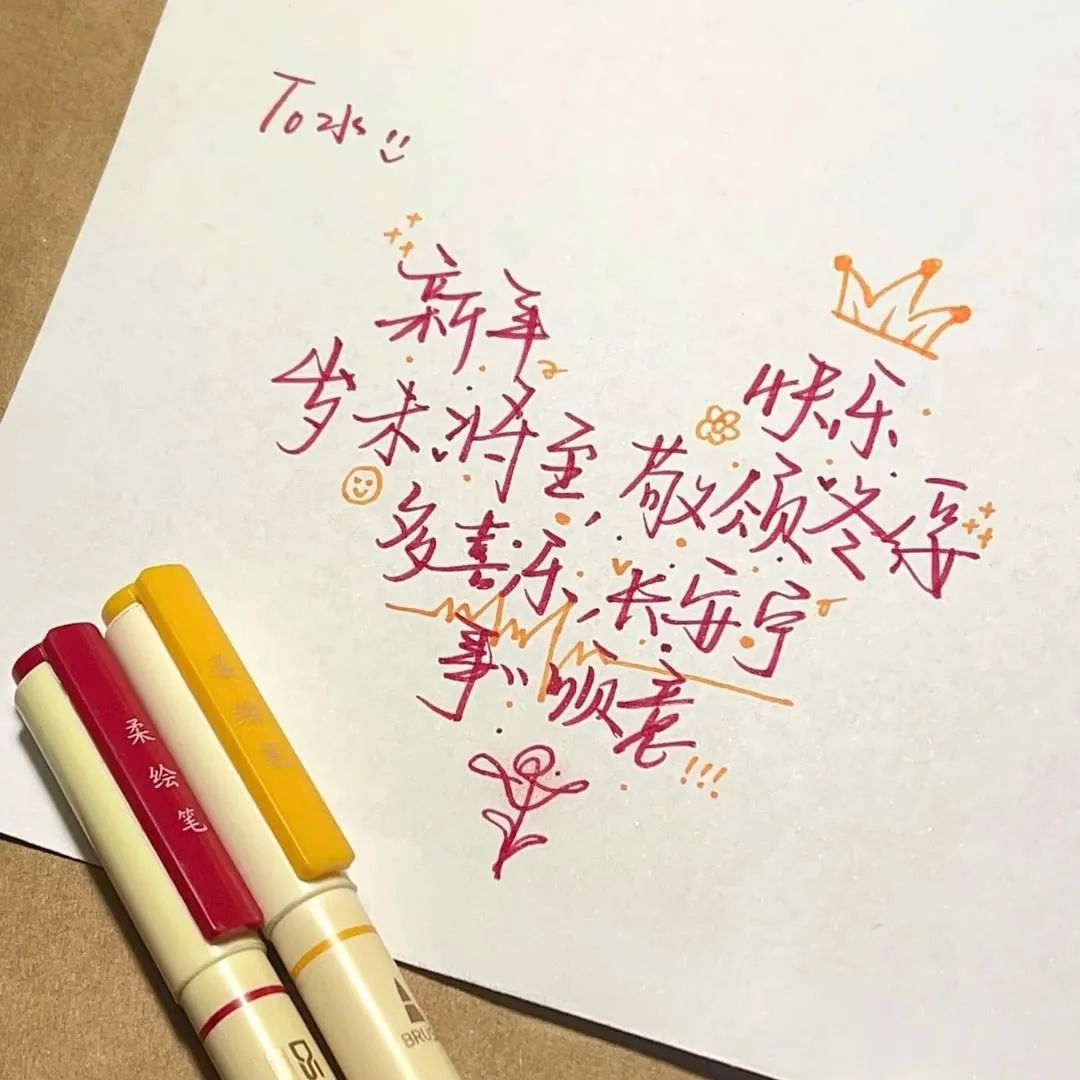 To 水
新年快乐
岁末将至,敬颂冬绥
多喜乐,长安宁
事事顺意!!!
柔绘笔
柔绘笔
BRU